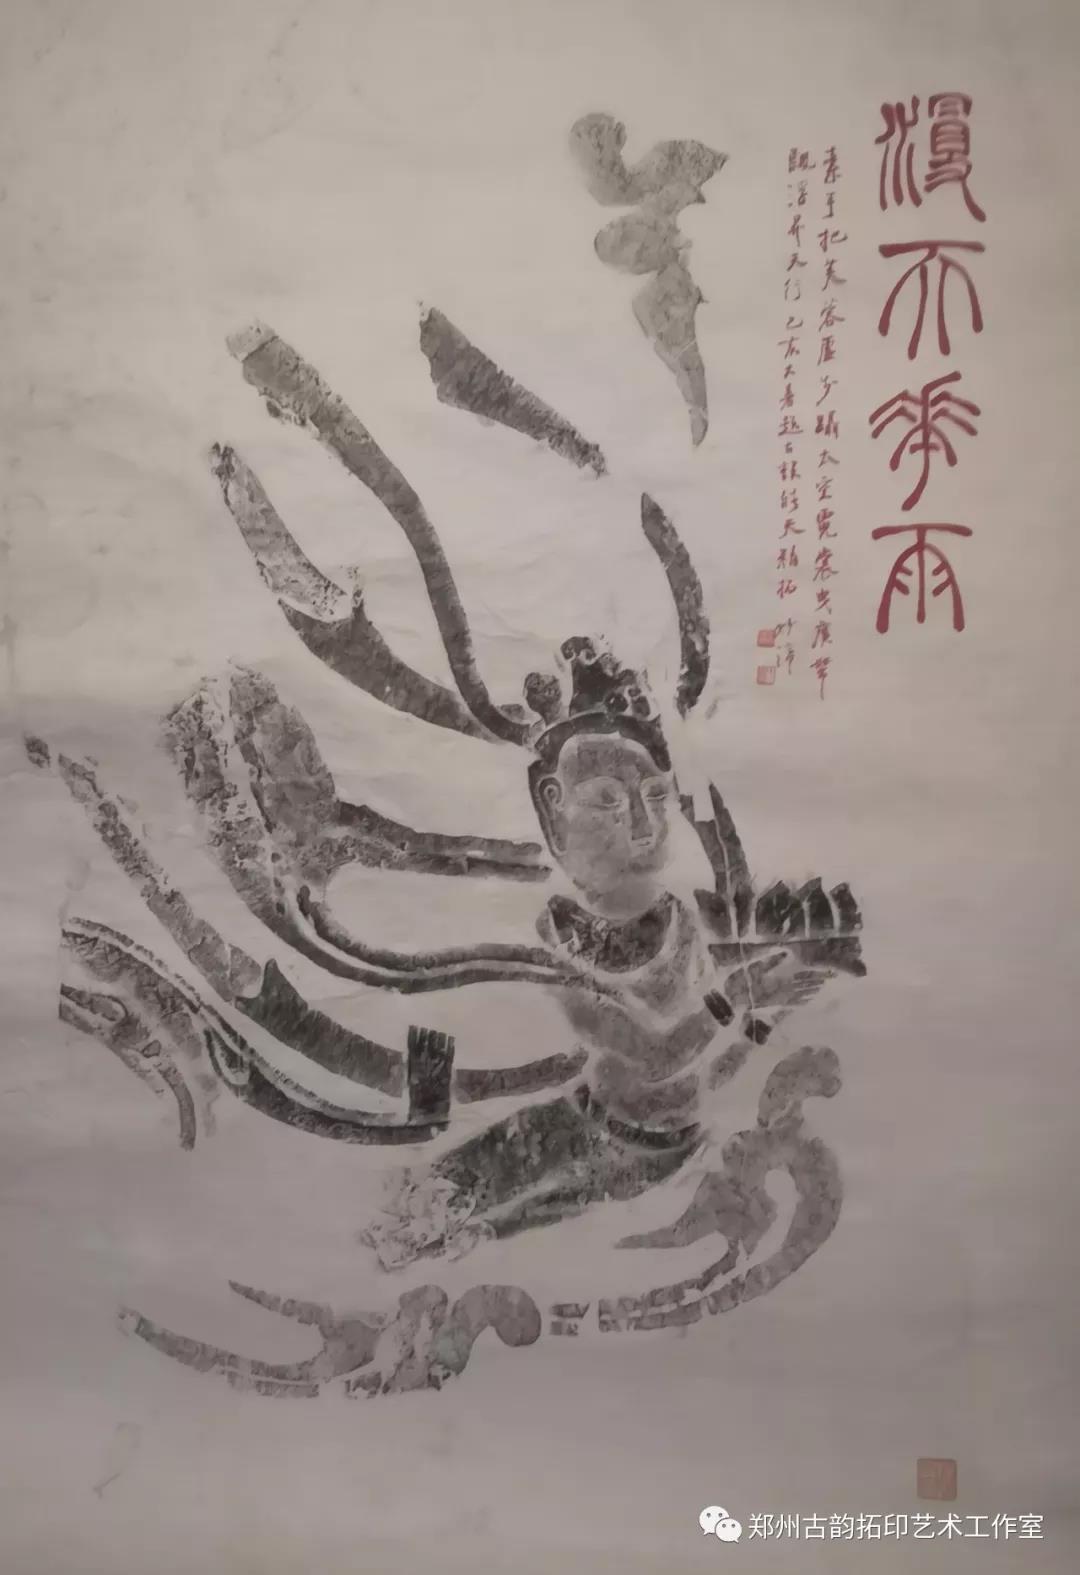 漫天華雨
素手把芙蓉虛步躡太空霓裳曳廣帶
飄浮昇天行己亥大暑題古韻飛天精拓
郑州古韵拓印艺术工作室